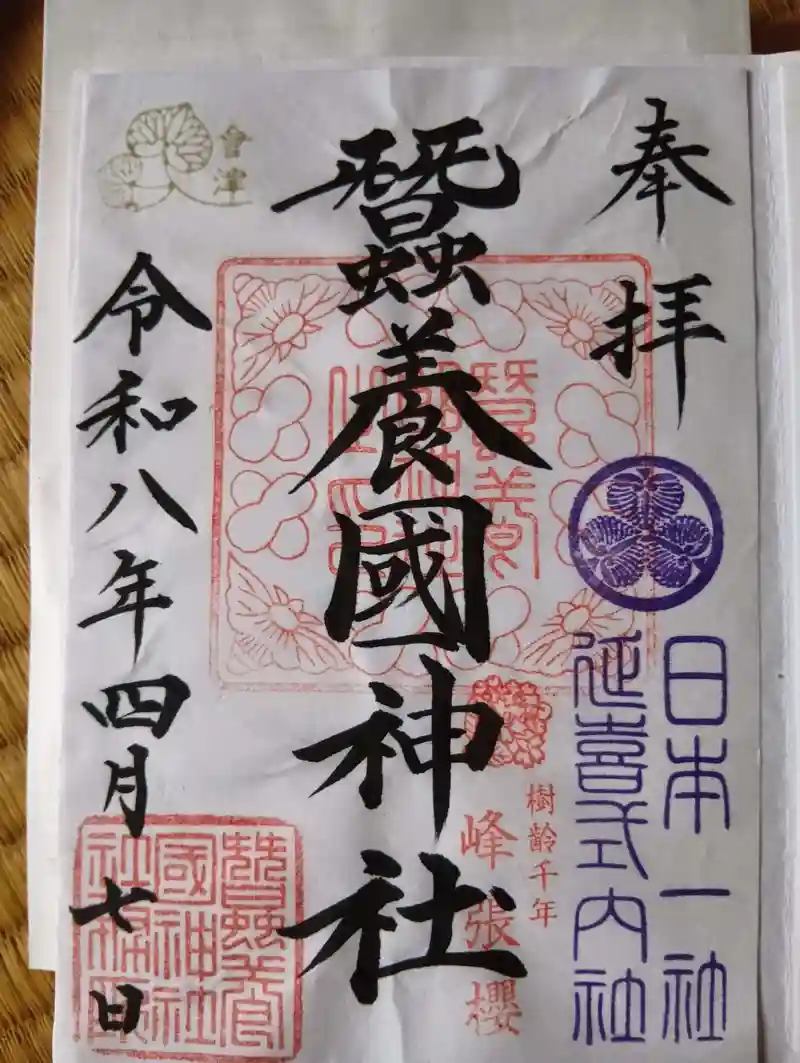 奉拝
日本一社
延喜式内社
蠶養國神社
樹齢千年
峰張櫻
會津
令和八年四月七日
蠶養國神社